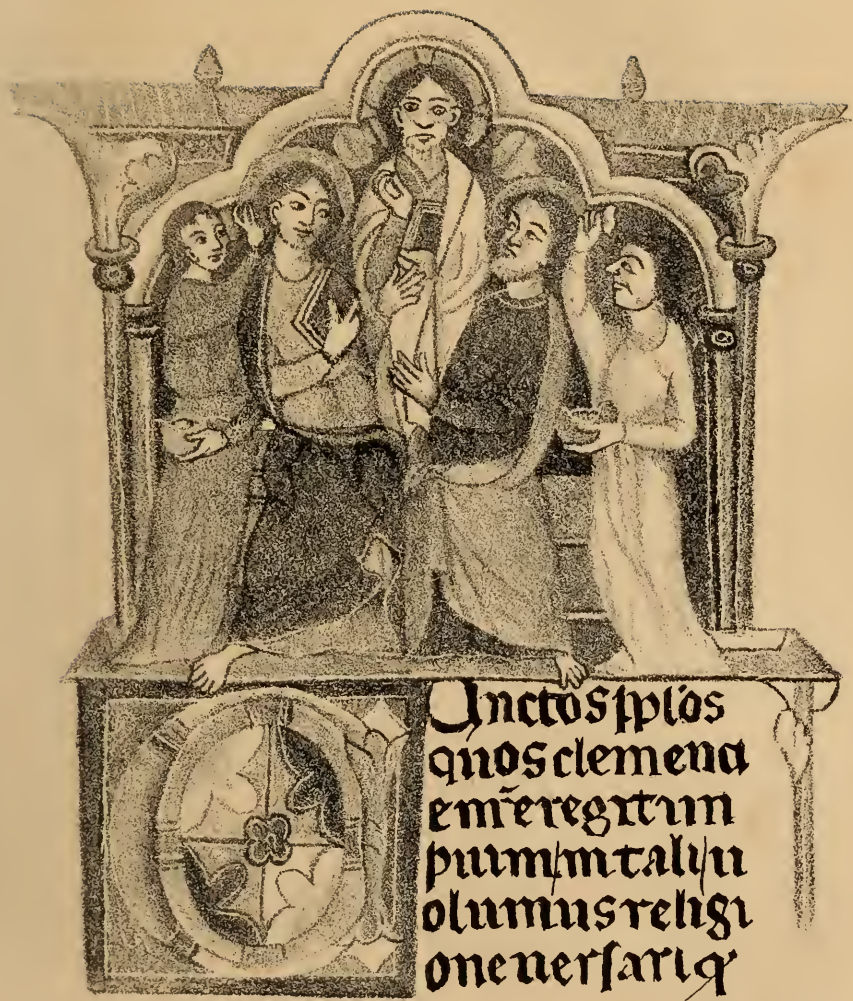 CUnctos pplos
quos clemenci
e nr̄e regit im
piuim in tali u
olumus religi
one uersari q